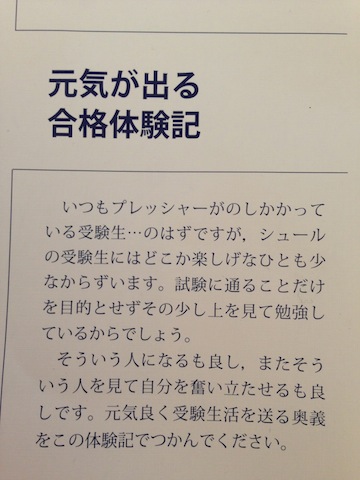 元気が出る
合格体験記
いつもプレッシャーがのしかかって
いる受験生…のはずですが，シュール
の受験生にはどこか楽しげなひとも少
なからずいます。試験に通ることだけ
を目的とせずその少し上を見て勉強し
ているからでしょう。
そういう人になるも良し，またそう
いう人を見て自分を奮い立たせるも良
しです。元気良く受験生活を送る奥義
をこの体験記でつかんでください。